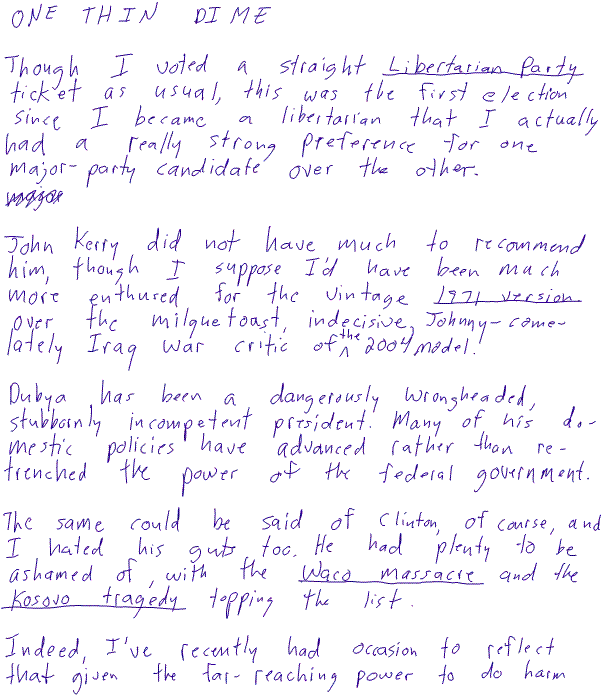 ONE THIN DIME
Though I voted a straight Libertarian Party
ticket as usual, this was the first election
since I became a libertarian that I actually
had a really strong preference for one
major-party candidate over the other.
major
John Kerry did not have much to recommend
him, though I suppose I'd have been much
more enthused for the vintage 1971 version
over the milquetoast, indecisive, Johnny-come-
lately Iraq war critic of the 2004 model.
Dubya has been a dangerously wrongheaded,
stubbornly incompetent president. Many of his do-
mestic policies have advanced rather than re-
trenched the power of the federal government.
The same could be said of Clinton, of course, and
I hated his guts too. He had plenty to be
ashamed of, with the Waco massacre and the
Kosovo tragedy topping the list.
Indeed, I've recently had occasion to reflect
that given the far-reaching power to do harm